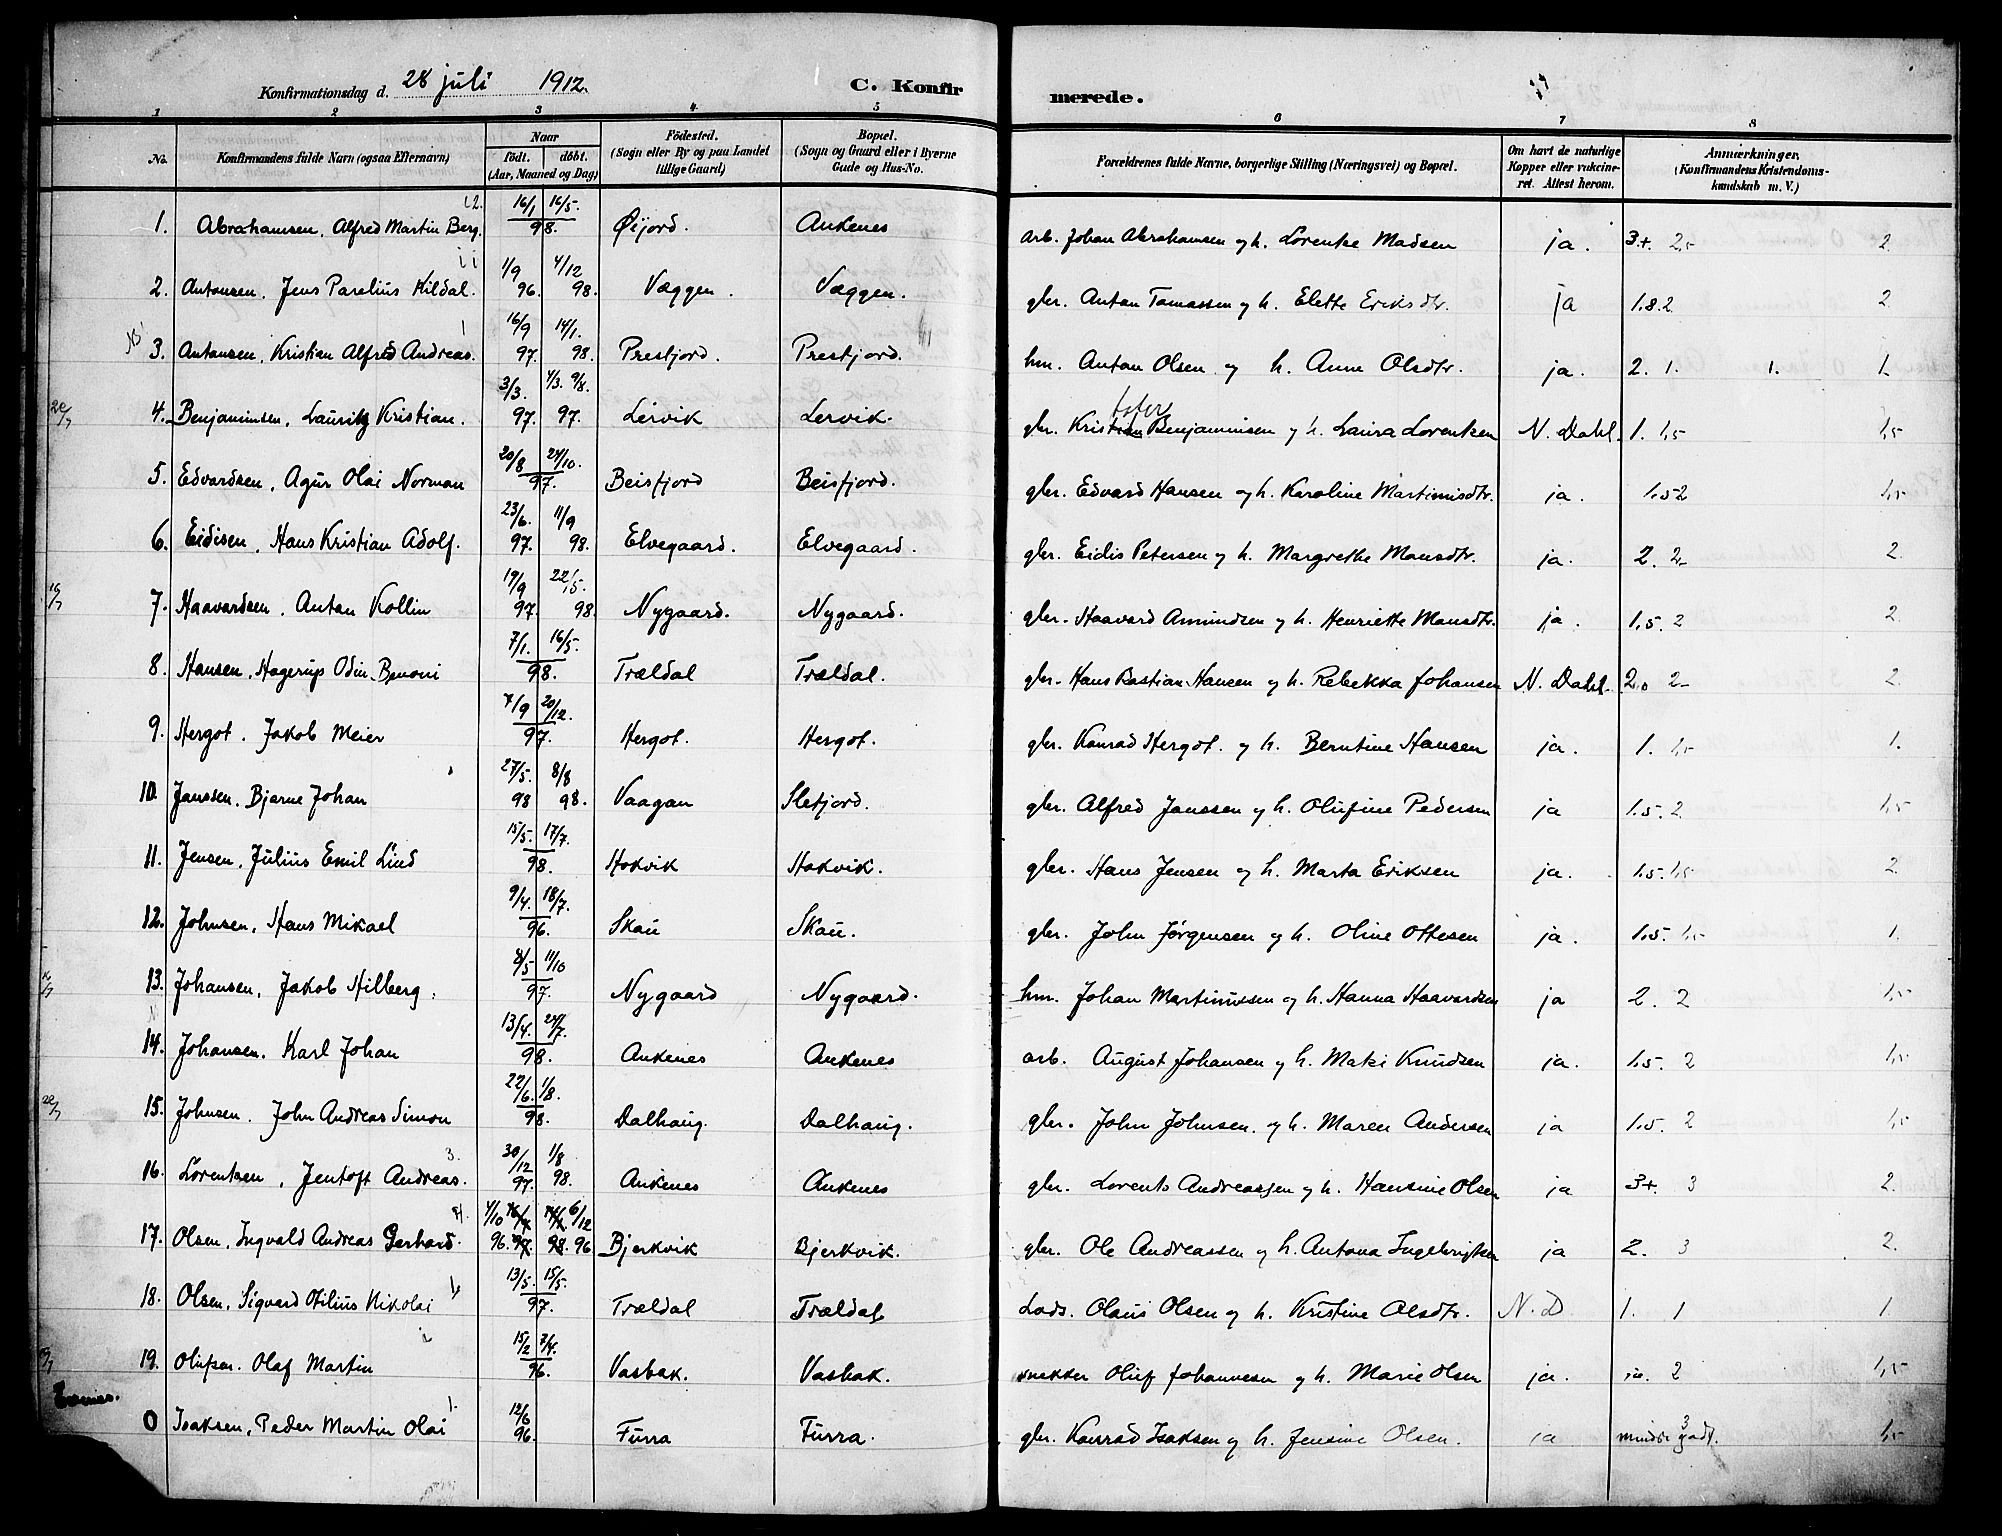 Konfirmationsdag d. 28 juli 1912. C. Konfirmerede.
1 2 3 4 5 6 7 8
No. Konfirmandens fulde Navn (ogsaa Efternavn) Naar født. døbt. (Aar, Maaned og Dag) Fødested. (Sogn eller By og paa Landet tillige Gaard) Bopæl. (Sogn og Gaard eller i Byerne Gade og Hus-No. Forældrenes fulde Navne, borgerlige Stilling (Næringsvei) og Bopæl. Om havt de naturlige Kopper eller vakcineret. Attest herom. Anmærkninger. (Konfirmandens Kristendomskundskab m. V.)
1. Abrahamsen, Alfred Martin Berg. 16/1 16/5. 98. Øijord. Ankenes arb. Johan Abrahamsen og h. Lorentse Madsen ja. 3+. 2,5 2.
2. Antonsen, Jens Parelius Hildal. 1/9 96. 4/12 98. Væggen. Væggen. gbr. Anton Tomassen og h. Elette Eriksdtr. ja 1.8.2. 2
3. Antonsen, Kristian Alfred Andreas. 16/9 97. 14/1. 98. Prestjord. Prestjord. hm. Anton Olsen og h. Anne Olsdtr. ja. 2. 1. 1. 1.
4. Benjaminsen, Lauritz Kristian. 3/3. 97. 4/3. 9/8. 97. Lervik Lervik. gbr. Kristofer Benjaminsen og h. Laura Lorentsen N. Dahl. 1. 1,5 1,5
5. Edvardsen, Agur Olai Norman 20/8 24/10. 97. Beisfjord Beisfjord. gbr. Edvard Hansen og h. Karoline Martinusdtr. ja. 1.5 2 1,5
6. Eidisen, Hans Kristian Adolf. 23/6. 97. 11/9 98. Elvegaard. Elvegaard. gbr. Eidis Petersen og h. Margrethe Monsdtr. ja. 2. 2- 2.
7. Haavardsen. Anton Kollin 19/9 97. 22/5. 98. Nygaard. Nygaard. gbr. Haavard Amundsen og h. Henriette Monsdtr. ja. 1.5. 2 2.
8. Hansen, Hagerup Odin Benoni 7/1. 16/5. 98. Trældal Trældal. gbr. Hans Bastian Hansen og h. Rebekka Johansen N. Dahl. 2. 2- 2.
9. Hergot. Jakob Meier 7/9 20/12. 97. Hergot. Hergot. gbr. Konrad Hergot. og h. Berntine Hansen ja. 1. 1,5 1.
10. Janssen. Bjarne Johan 27/5. 98 8/8 98. Vaagan Sletjord. gbr. Alfred Janssen og h. Olufine Pedersen ja 1.5. 2 1,5
11. Jensen, Julius Emil Lind 15/5. 17/7. 98. Hokvik Hokvik. gbr. Hans Jensen og h. Marta Eriksen ja. 1.5. 1,5 2.
12. Johnsen, Hans Mikael 9/4. 18/7. 96. Skau Skau. gbr. John Jørgensen og h. Oline Ottesen ja. 1.5. 1,5 1.
13. Johansen, Jakob Hilberg. 8/5 11/10 97. Nygaard Nygaard. hm. Johan Martinussen og h. Hanna Haavardsen ja 2. 2 1,5
14. Johansen. Karl Johan 13/4. 24/7. 98. Ankenes Ankenes arb. August Johansen og h. Maki Knudsen ja. 1.5. 2 1,5
15. Johnsen. John Andreas Simon 22/6. 1/8. 98. Dalhaug. Dalhaug. gbr. John Johnsen. og h. Maren Andersen ja 1.5. 2 1,5
16. Lorentsen, Jentoft Andreas. 3. 30/12 97. 1/8 98. Ankenes Ankenes gbr. Lorents Andreassen og h. Hansine Olsen ja 3+. 3 2.
17. Olsen, Ingvald Andreas Gerhard. 4/10 96. 97. 98. 6/12 96 Bjerkvik Bjerkvik. gbr. Ole Andreassen og h. Antona Ingebrigtsen ja 2. 3 2.
18. Olsen, Sigvard Otilius Nikolai 13/5. 15/5. 97. Trældal Trældal Lods. Olaus Olsen og h. Kristine Olsdtr. N. D 1. 1 1
19. Olufsen. Olaf Martin 15/2 7/4. 96. Vasbak. Vasbak. snekker Oluf Johannesen og h. Marie Olsen ja. 2 1,5
Evenes.
0 Isaksen, Peder Martin Olai 1. 12/6 96. Furra Furra. gbr. Konrad Isaksen og h. Jensine Olsen. ja mindre godt. 3 1,5